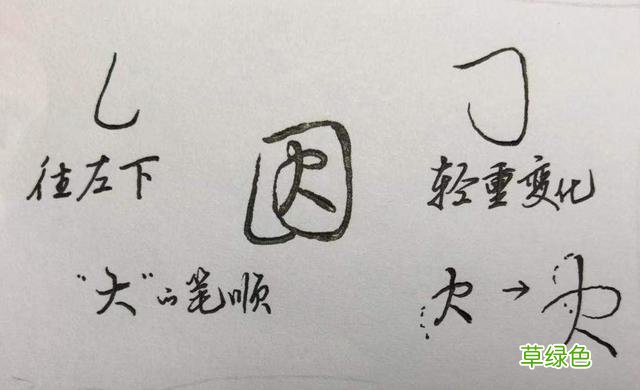 因
往左下
轻重变化
"大"的笔顺
大 → 大
草绿色